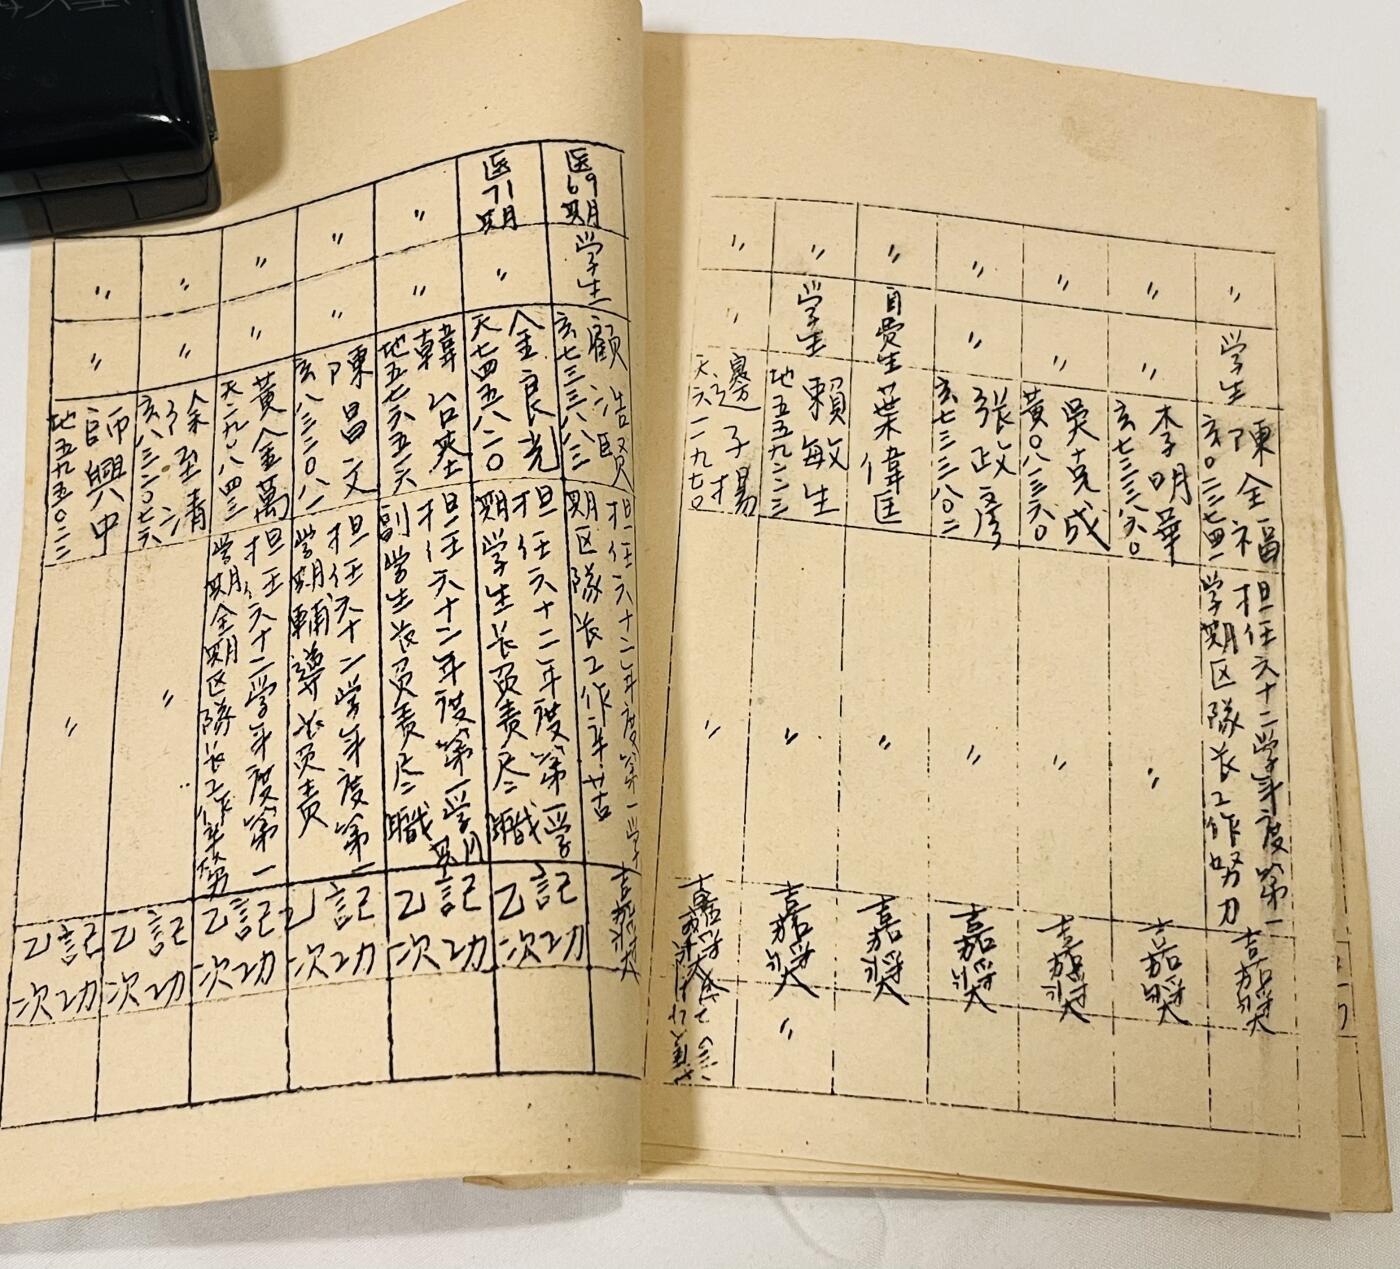 〃
学生
陳全福
玄〇二三七四一
担任六十二学年度第一
学期区隊长工作努力
嘉奬
〃
〃
李明華
玄七三三八六〇
〃
嘉奬
〃
〃
吳克成
黃〇八三六〇
〃
嘉奬
〃
〃
張政彥
玄七三三八〇二
〃
嘉奬
〃
自費生
葉偉匡
〃
嘉奬
〃
学生
賴敏生
地五五九二二三
〃
嘉奬
〃
〃
〃
邊子揚
天六一一九七〇
〃
嘉奬
医69期
学生
顧浩賢
玄七三三六八三
担任六十二年度第一学
期区隊长工作辛苦
嘉奬
医71期
〃
金良光
天七四五八二〇
担任六十二年度第一学
期学生长負责尽職
記功
乙次
〃
〃
韓台英
担任六十二年度第一学期
副学生长負责尽職
記功
乙次
〃
〃
陳昌文
玄八三三〇八一
担任六十二学年度第一
学期輔導长負责
記功
乙次
〃
〃
黃金萬
天二九〇八四三
担任六十二学年度第一
学期全期区隊长工作
記功
乙次
〃
〃
徐至清
玄八三二〇七六
〃
記功
乙次
〃
〃
師興中
地五九五〇二三
〃
記功
乙次